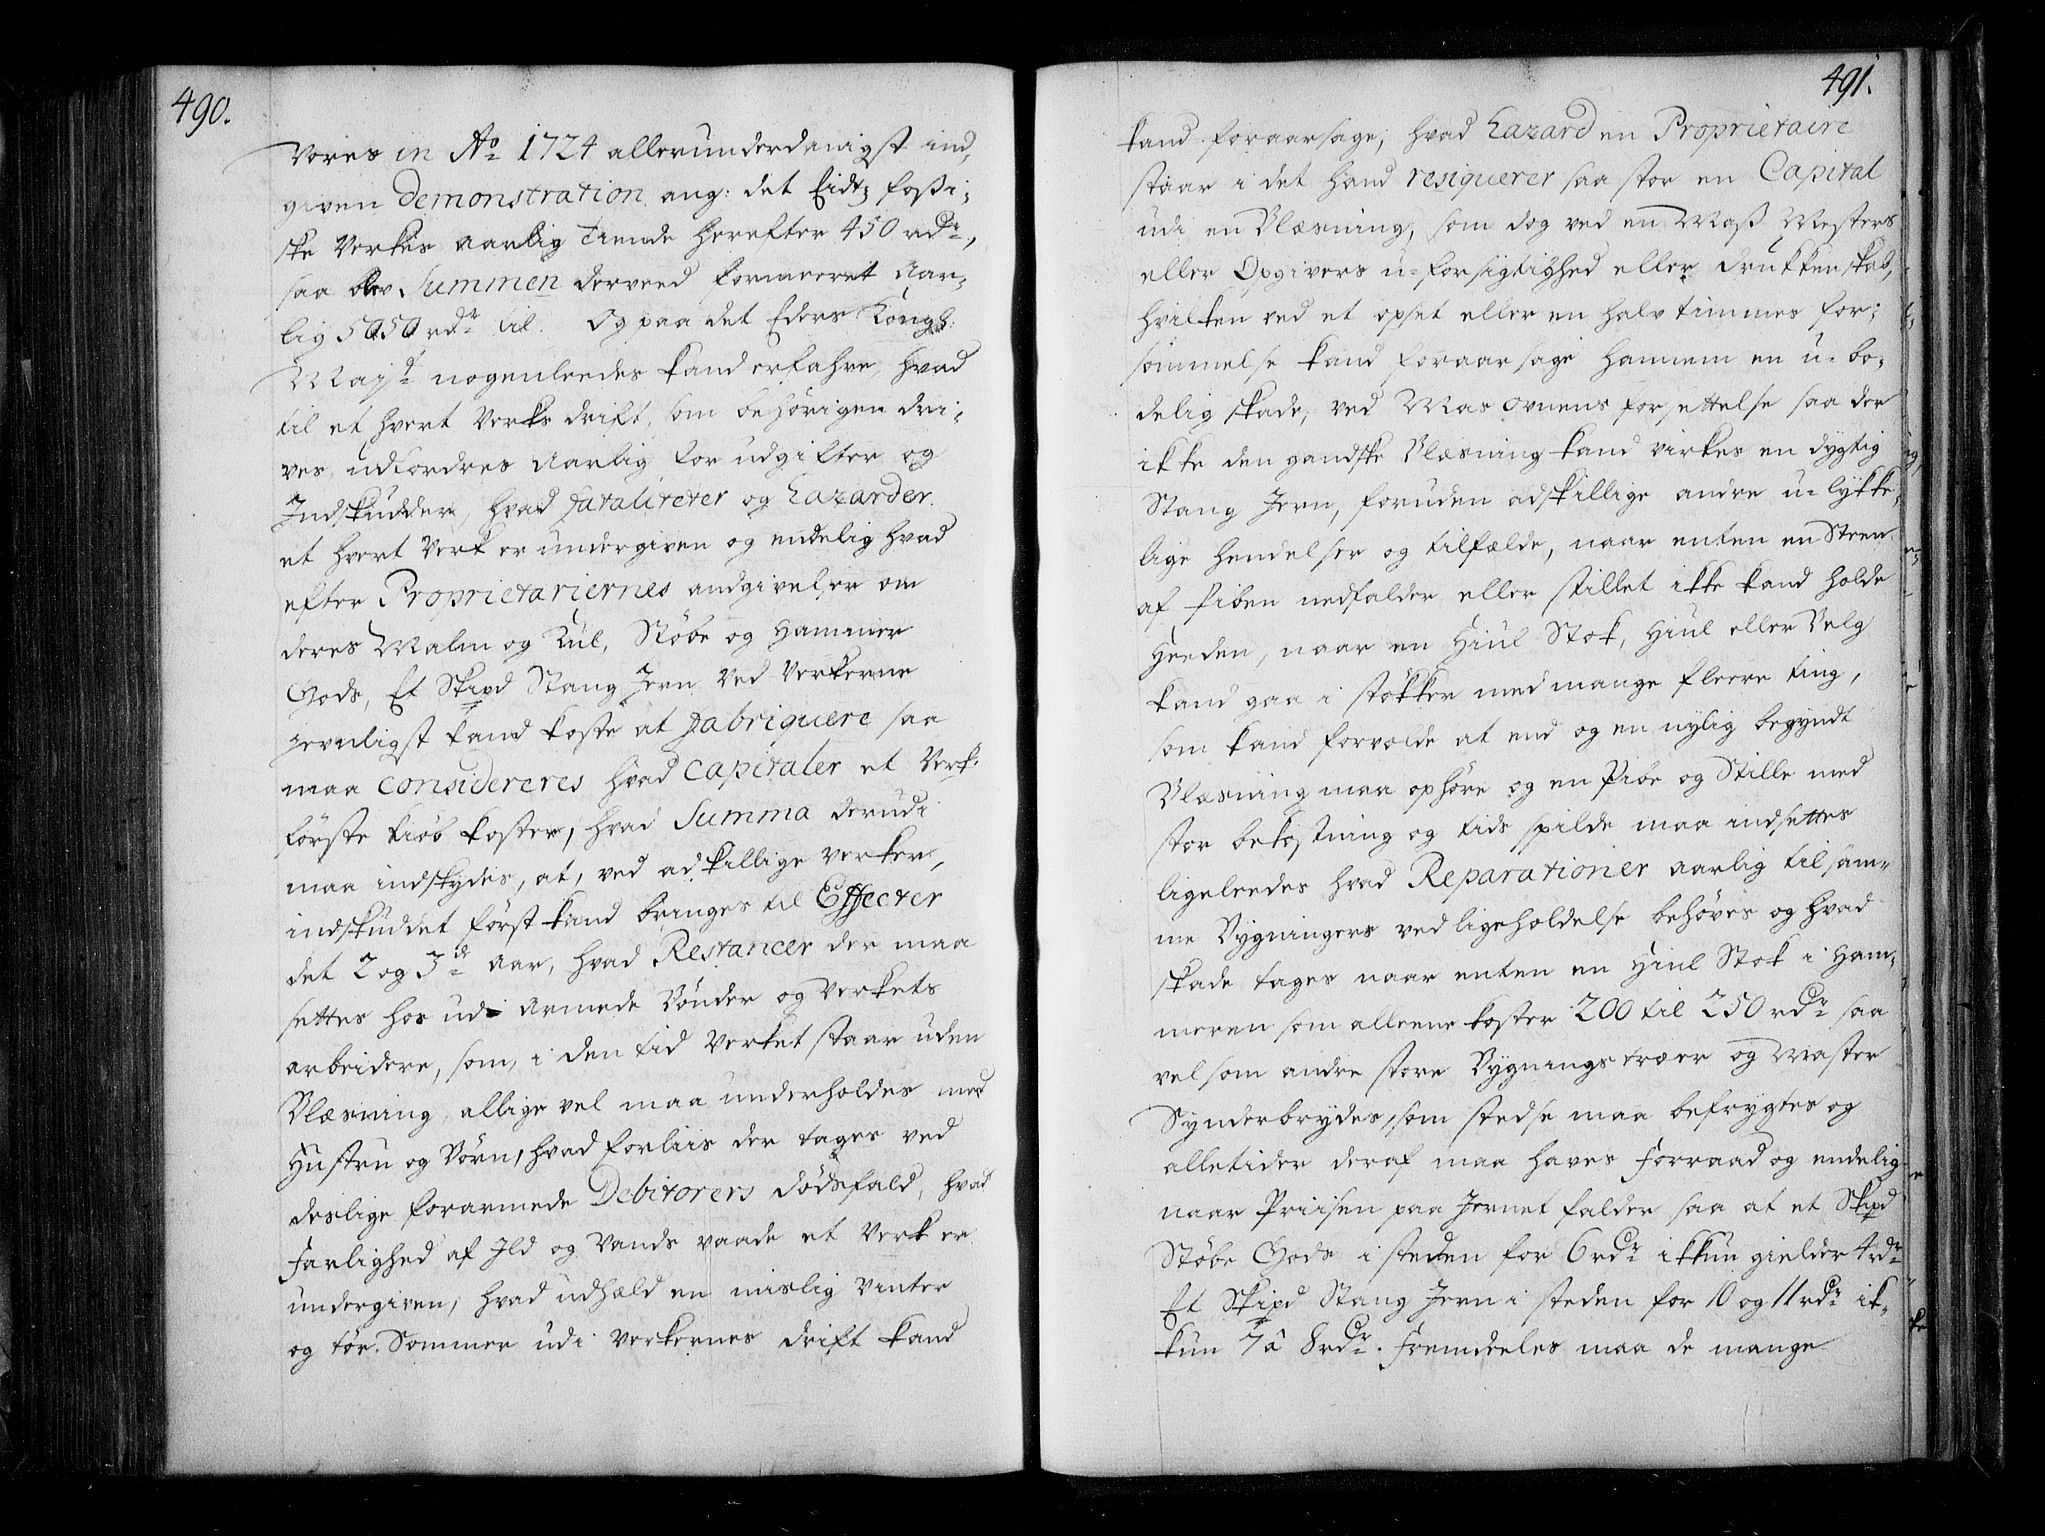 490.
Vores in Ao 1724 allerunderdanigst ind„
given Demonstration ang: det Eidtz fossi„
ske Verkes aarlig Tiende herefter 450 rdr,
saa blev Summen derved formeeret Aar„
lig 5050 rdr til. Og paa det Eders Kongl:
Mayt nogenleedes kand erfahre, hvad
til et hvert Verks drift, som behörigen dri„
ves, udfordres Aarlig for udgifter og
Indskudder, hvad Fataliteter og Hazarder
et hvert Verk er undergiven og endelig hvad
efter Proprietariernes andgivelser om
deres Malm og Kul, Støbe og Hammer
Gods, Et Skipd Stang Jern ved Verkerne
jevnligst kand koste at Fabriquere saa
maa considereres hvad Capitaler et Verk
første kiøb koster, hvad Summa derudi
maa indskydes, at, ved adskillige verker,
indskuddet först kand bringes til Effecter
det 2 og 3de Aar, hvad Restancer der maa
settes hos ud armede Bönder og Verkets
arbeidere, som, i den tid Verket staar uden
Blæsning, alligevel maa underholdes med
Hustru og Börn, hvad forliis der tages ved
deslige forarmede Debitorers dødsfald, hvad
Farlighed af Ild og Vands vaade et Verk er
undergiven, hvad udheld en mislig Vinter
og tör Sommer udi Verkernes drift kand
491.
kand foraarsage, hvad Hazard en Proprietaire
staar i det hand resiquerer saa stor en Capital
udi en Blæsning, som dog ved en Mass Mesters
eller Opgivers u-forsigtighed eller drukkenskab,
hvilken ved et opset eller en halv times for„
sømmelse kand foraarsage hannem en u-bo„
delig skade, ved Mas ovnens forsettelse saa der
ikke den gandske Blæsning kand virkes en dygtig
Stang Jern, foruden adskillige andre u-lykke„
lige hendelser og tilfælde, naar enten en Steen
af Piben nedfalder eller stillet ikke kand holde
Heeden, naar en Hiul Stok, Hiul eller Belg
kand gaa i støkker med mange fleere ting,
som kand forvolde at end og en nylig begyndt
Blæsning maa ophøre og en Pibe og Stille med
stor bekostning og tids spilde maa indsettes
ligeleedes hvad Reparationer aarlig til sam„
me Bygningers vedligeholdelse behøves og hvad
skade tages naar enten en Hiul Stok i Ham„
meren som alleene koster 200 til 250 rdr saa
vel som andre store Bygnings træer og Master
Synderbrydes, som stedse maa befrygtes og
alletider deraf maa haves Forraad og endelig
naar Priisen paa Jernet falder saa at et Skipd
Støbe Gods i steden for 6 rdr ikkun gielder 4 rdr
Et Skipd Stang Jern i steden for 10 og 11 rdr ik„
kun 7 â 8 rdr. Fremdeeles maa de mange